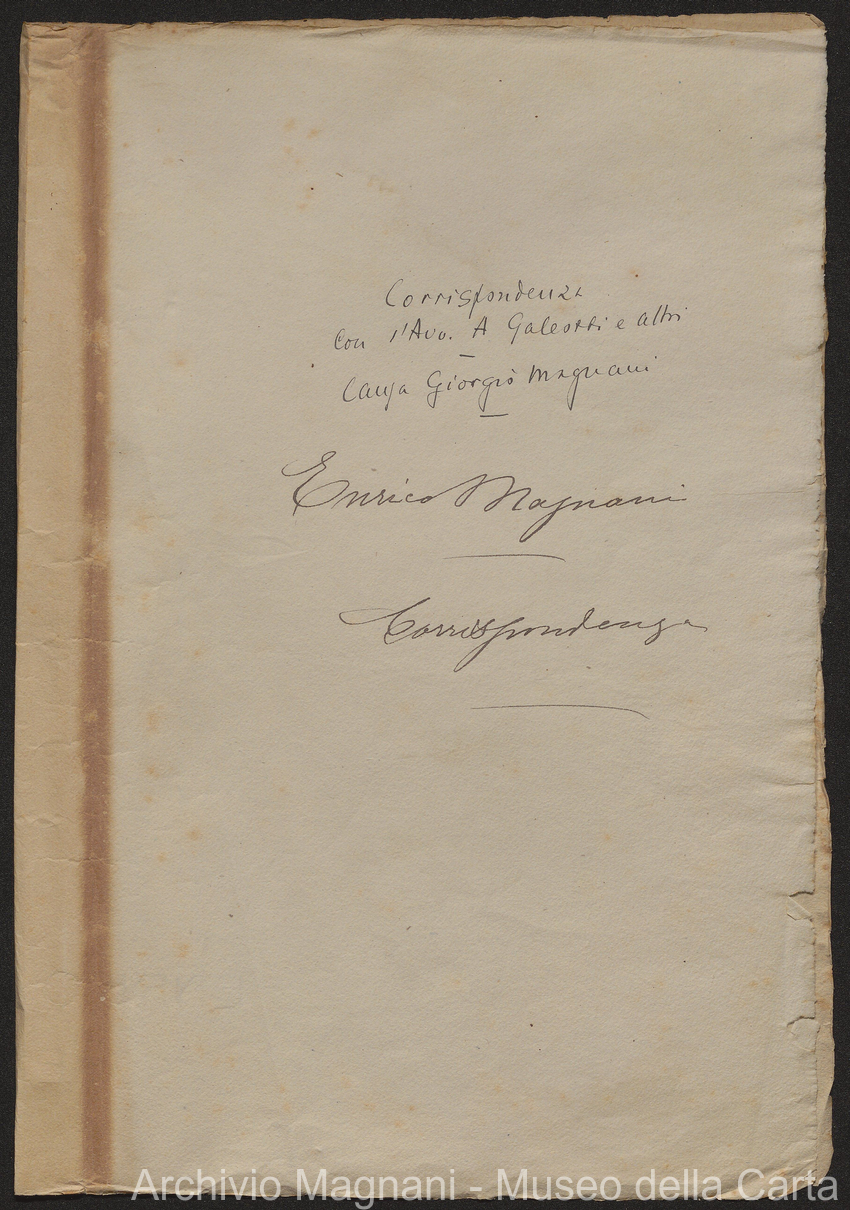 Corrispondenza
Con l'Avv. A Galeotti e altri
Causa Giorgio Magnani
Enrico Magnani
Corrispondenza
Archivio Magnani - Museo della Carta